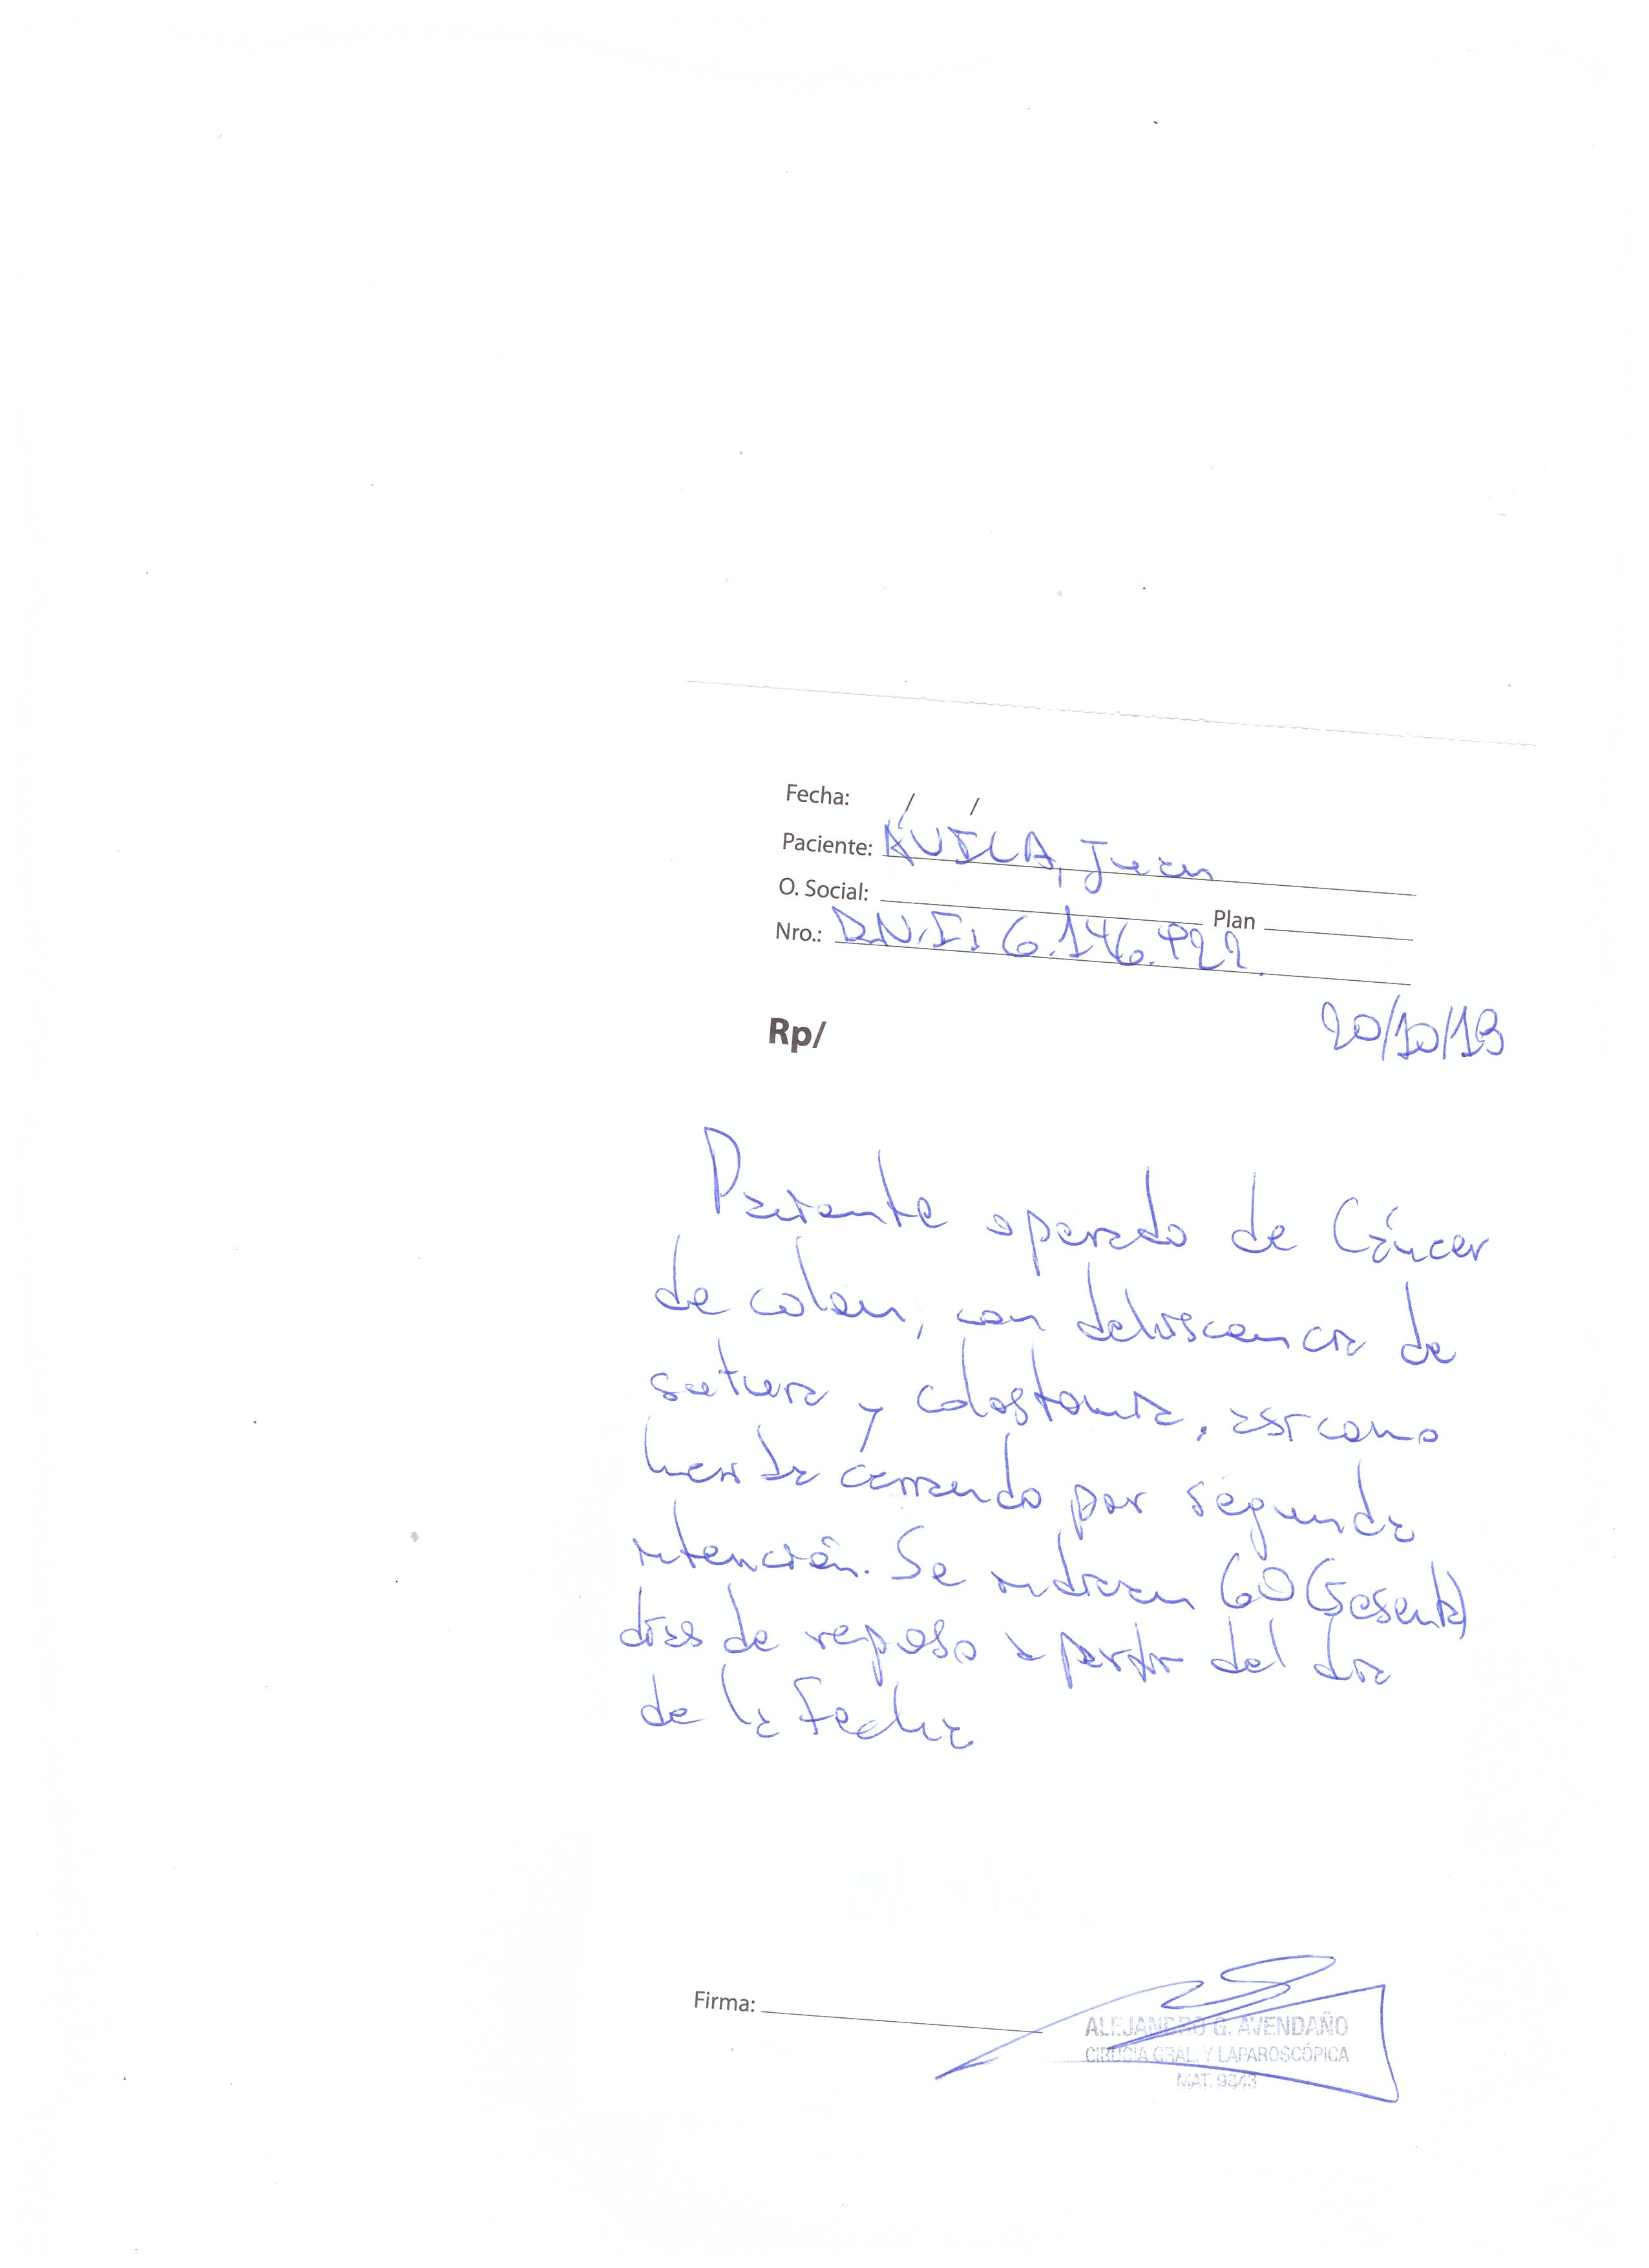 Fecha: / /
Paciente: ÁVILA, Juan
O. Social: Plan
Nro.: D.N.I: 6.146.922.
Rp/
20/10/13
Paciente operado de Cáncer
de colon, con dehiscencia de
sutura y colostomía, así como
herida cerrando por segunda
intención. Se indican 60 (sesenta)
días de reposo a partir del día
de la fecha
Firma:
ALEJANDRO G. AVENDAÑO
CIRUGÍA GRAL. Y LAPAROSCÓPICA
MAT. 9843